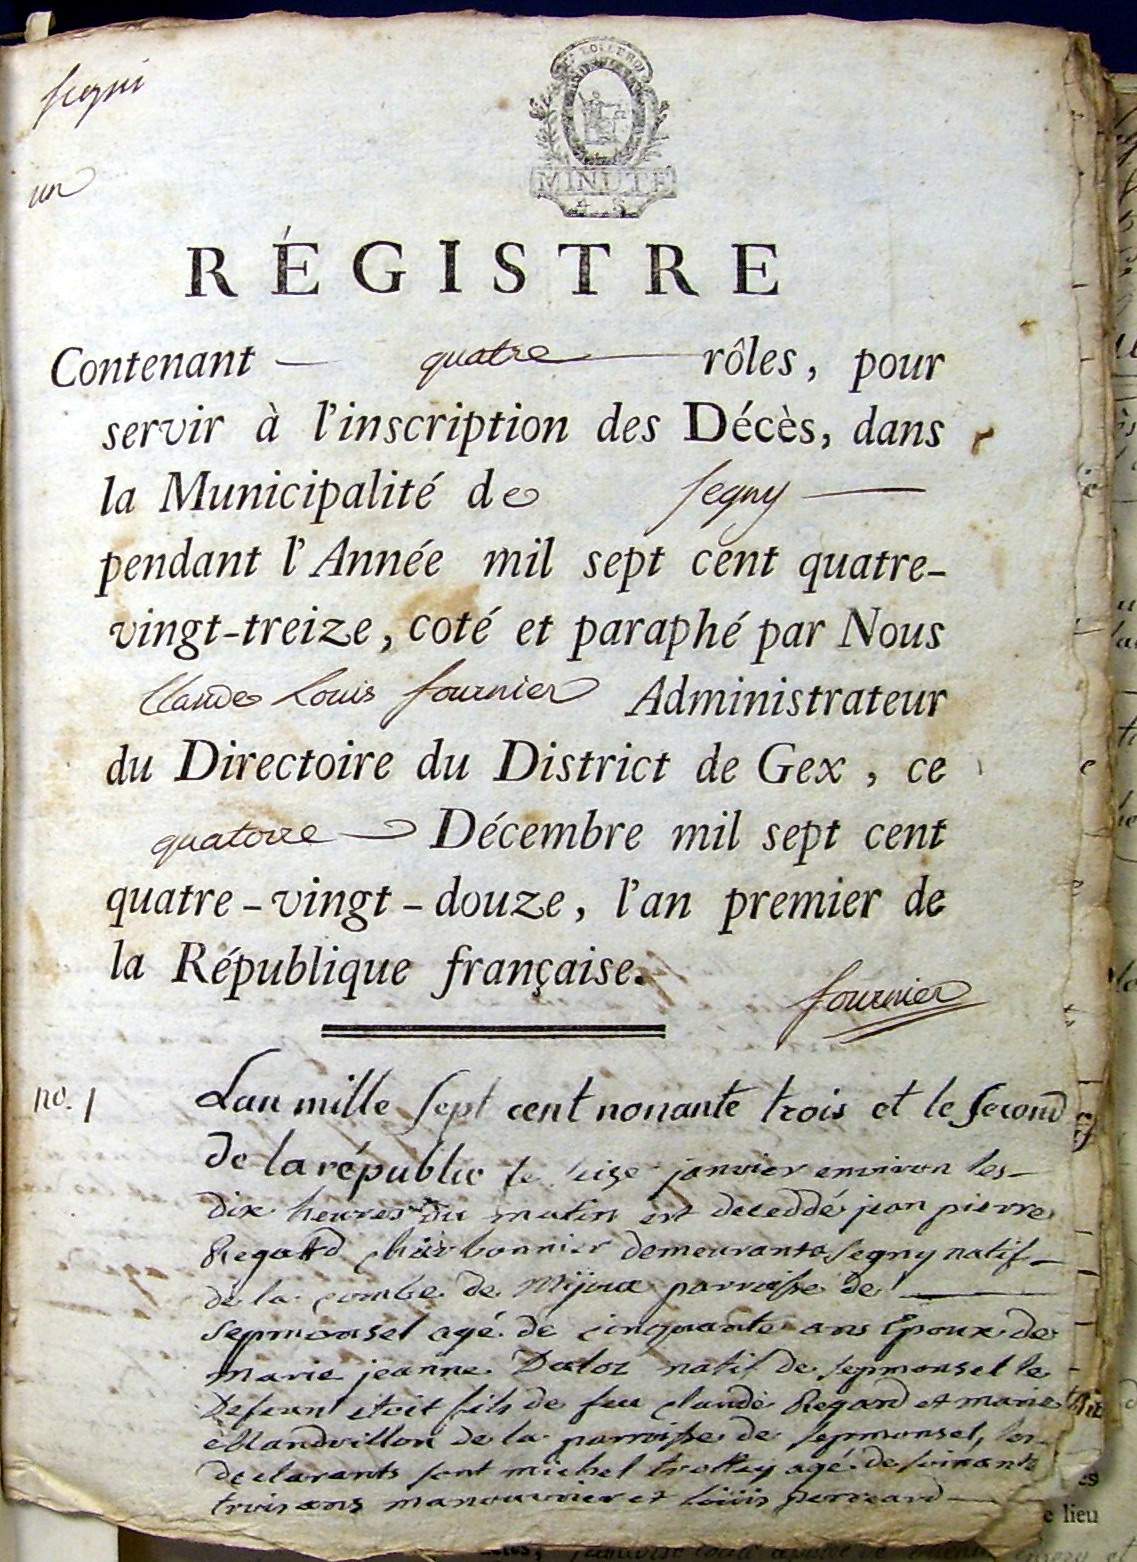 Segni
un
LA LOI LE ROI
MINUTE
4. S.
RÉGISTRE
Contenant — quatre — rôles, pour
servir à l'inscription des Décès, dans
la Municipalité de Segny —
pendant l'Année mil sept cent quatre-
vingt-treize, coté et paraphé par Nous
Claude Louis fournier Administrateur
du Directoire du District de Gex, ce
quatorze Décembre mil sept cent
quatre-vingt-douze, l'an premier de
la République française.
fournier
no. 1
Lan mille Sept cent nonante trois et le Second
De la républic le seize janvier environ les
dix heures du matin est deceddé jean pierre
Regard charbonnier demeurant a Segny natif
de la combe de Mijoux parroisse de
Sepmonsel agé de cinquante ans Epoux de
marie jeanne Daloz natif de sepmonsel le
Defeun étoit fils de feu claude Regard et marie
de la parroisse de sepmonsel, les
declarants sont michel trottey agé de soixante
trois ans manouvrier et Loüis perreard
e lieu